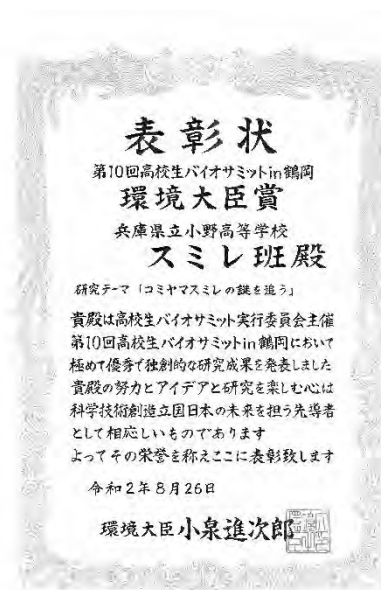 表彰状
第10回高校生バイオサミットin鶴岡
環境大臣賞
兵庫県立小野高等学校
スミレ班殿
研究テーマ「コミヤマスミレの謎を追う」
貴殿は高校生バイオサミット実行委員会主催
第10回高校生バイオサミットin鶴岡において
極めて優秀で独創的な研究成果を発表しました
貴殿の努力とアイデアと研究を楽しむ心は
科学技術創造立国日本の未来を担う先導者
として相応しいものであります
よってその栄誉を称えここに表彰致します
令和2年8月26日
環境大臣小泉進次郎